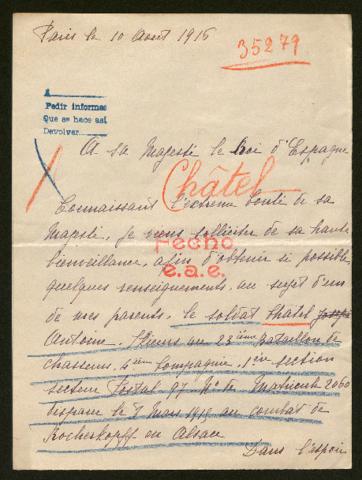 Paris le 10 Aout 1915
35279
A
Pedir informes
Que se hace así
Devolver
A sa Majesté le Roi d'Espagne
Châtel
Connaissant l'extrême bonté de sa
Majesté, je viens solliciter de sa haute
Fecho
bienveillance, afin d'obtenir si possible
e.a.e.
quelques renseignements, au sujet d'un
de mes parents. le soldat Chatel Joseph
Antoine. au 23ième Bataillon de
chasseurs. Compagnie, 1ère section
secteur Postal 97 Nº Matricule 2060
disparu le Mars 1915 au combat de
en Alsace
Dans l'espoir